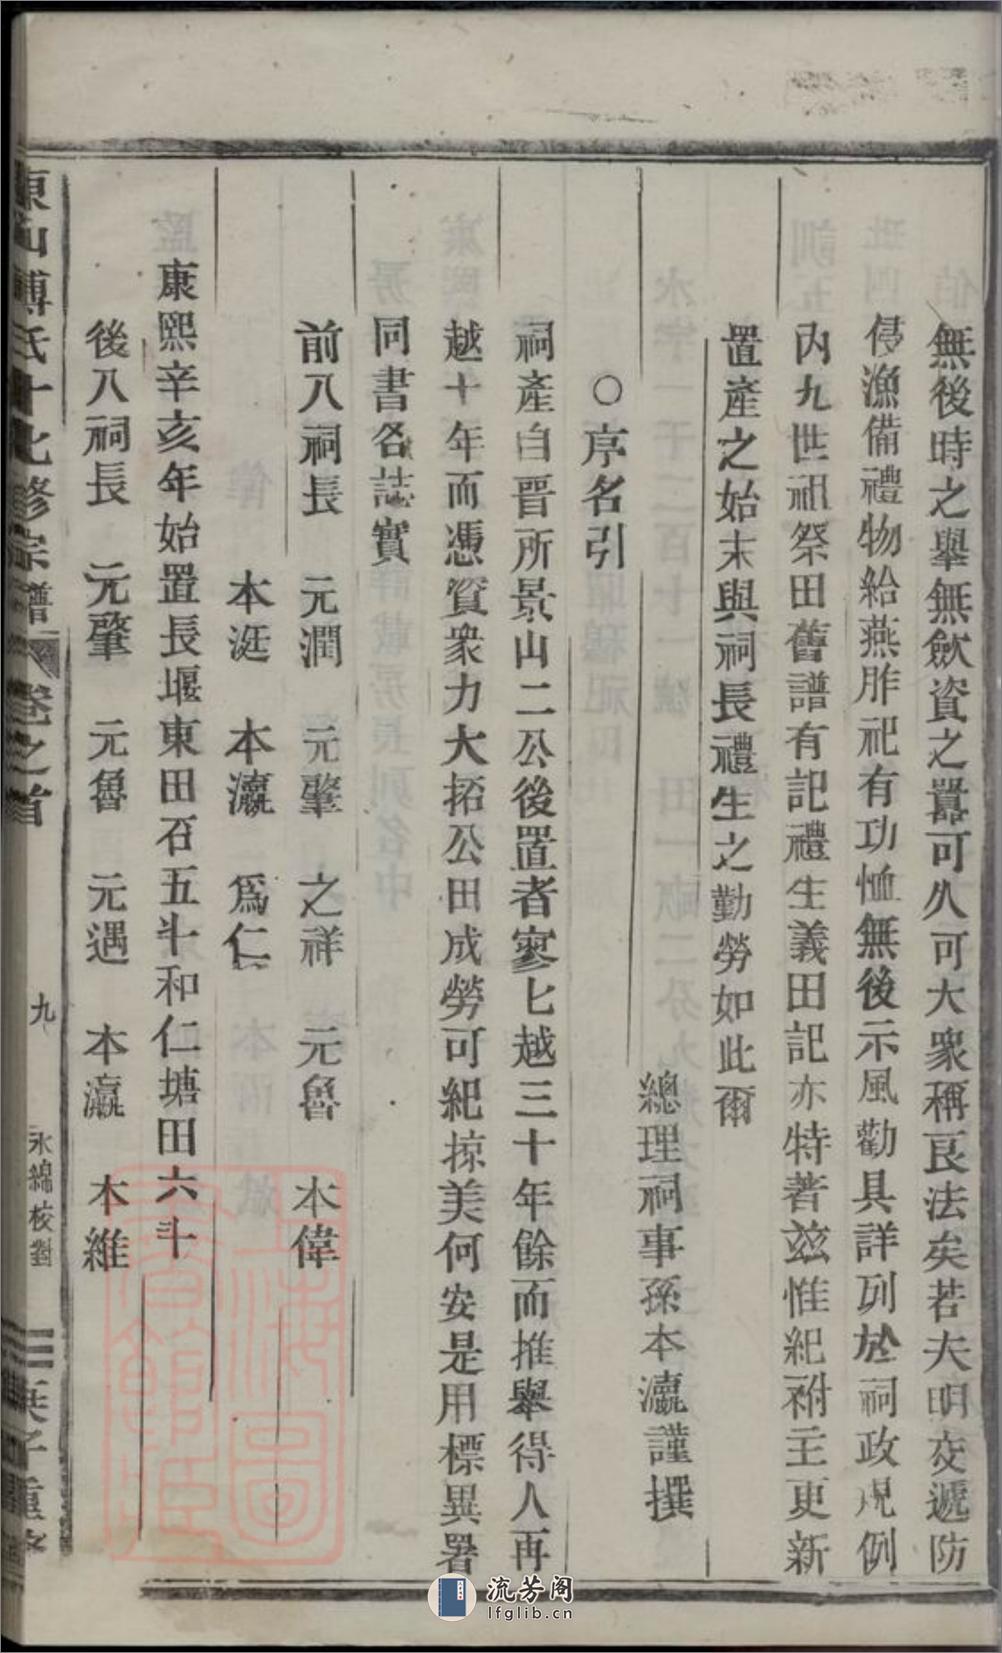 無後時之舉無斂資之囂可久可大衆稱良法矣若夫明交遞防
侵漁備禮物給燕胙祀有功恤無後示風勸具詳列於祠政規例
內九世祖祭田舊譜有記禮生義田記亦特著茲惟紀祔主更新
置產之始末與祠長禮生之勤勞如此爾
總理祠事孫本瀛謹撰
○序名引
祠產自晉所景山二公後置者寥匕越三十年餘而推舉得人再
越十年而憑資衆力大拓公田成勞可紀掠美何安是用標異署
同書各誌實
前八祠長 元潤 元肇 之祥 元魯 本偉
本涎 本瀛 爲仁
康熙辛亥年始置長堰東田石五斗和仁塘田六斗
後八祠長 元肇 元魯 元遇 本瀛 本維
東山傅氏十七修宗譜 卷之首 九 永綿校對 重修
流芳阁
lfglib.cn